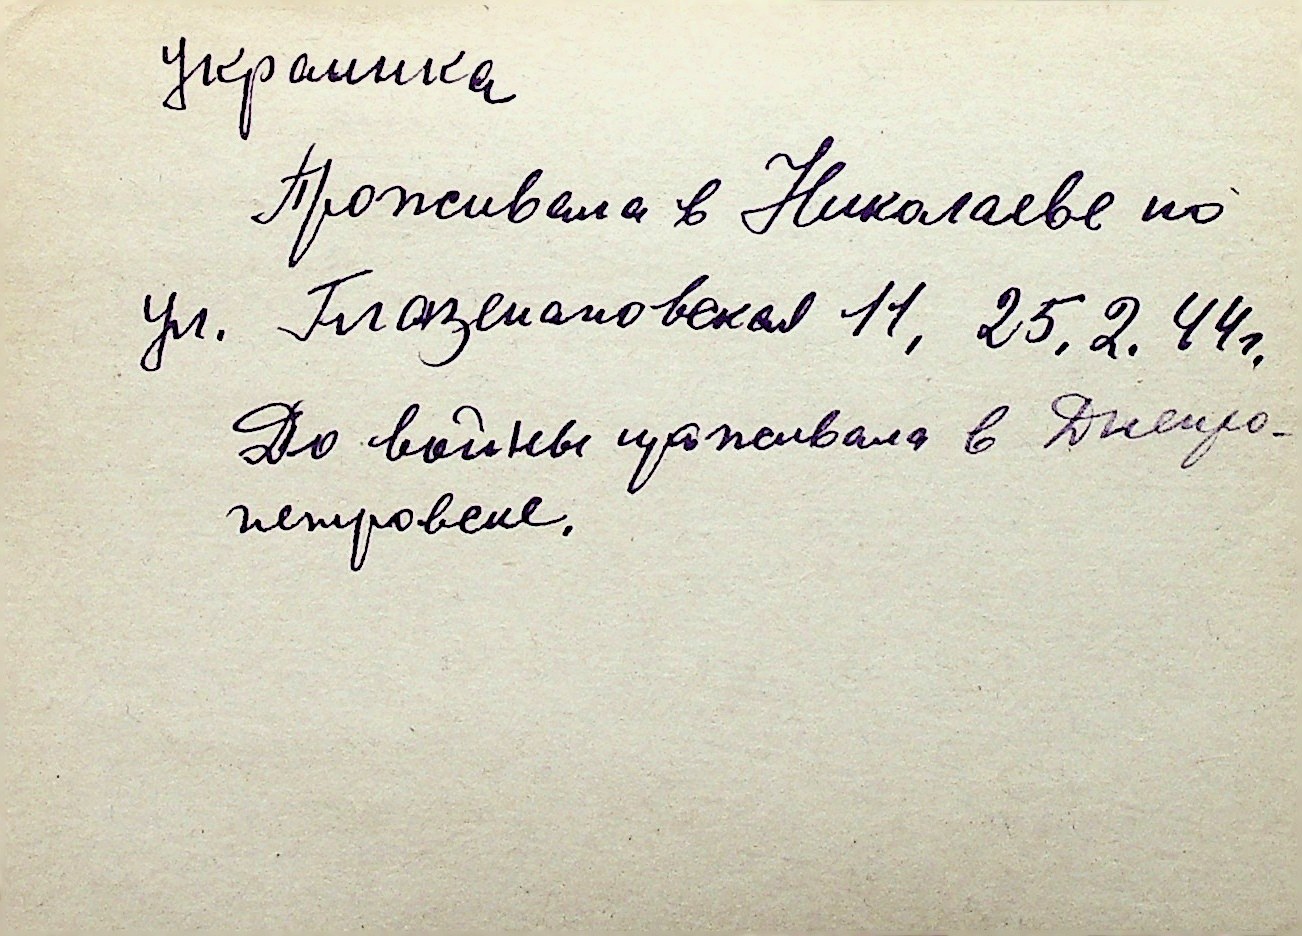 Украинка
Проживала в Николаеве по
ул. Глазенаповская 11, 25.2.44г.
До войны проживала в Днепро-
петровске.